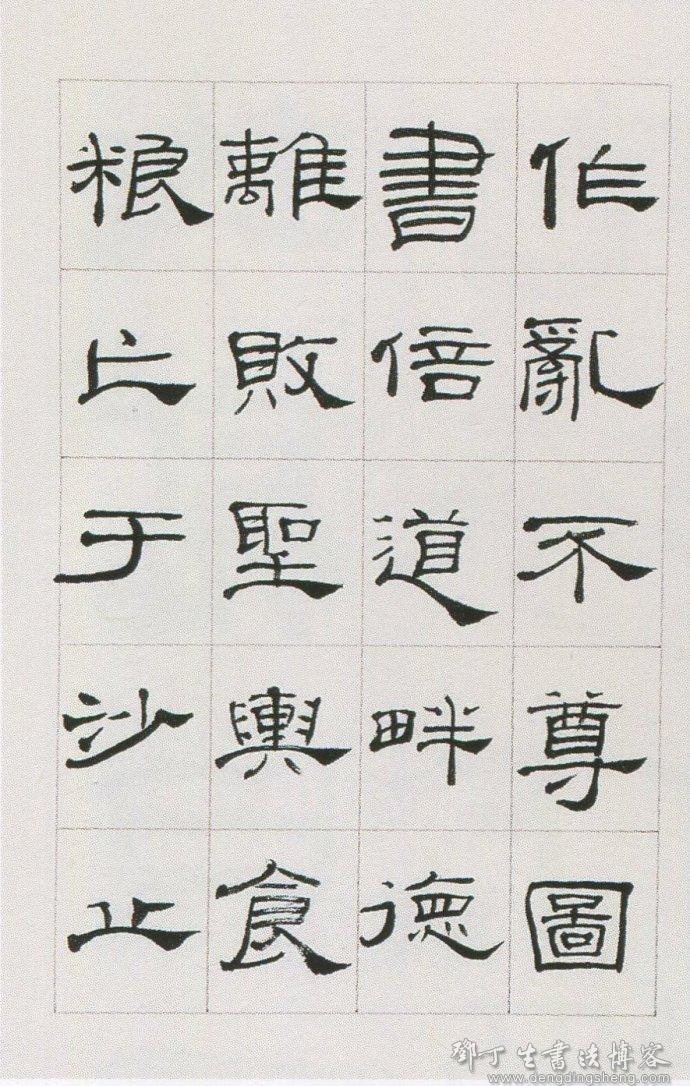 作亂不尊圖
書倍道畔德
離敗聖輿食
粮亡于沙止
鄧丁生書法博客
www.dengdingsheng.com